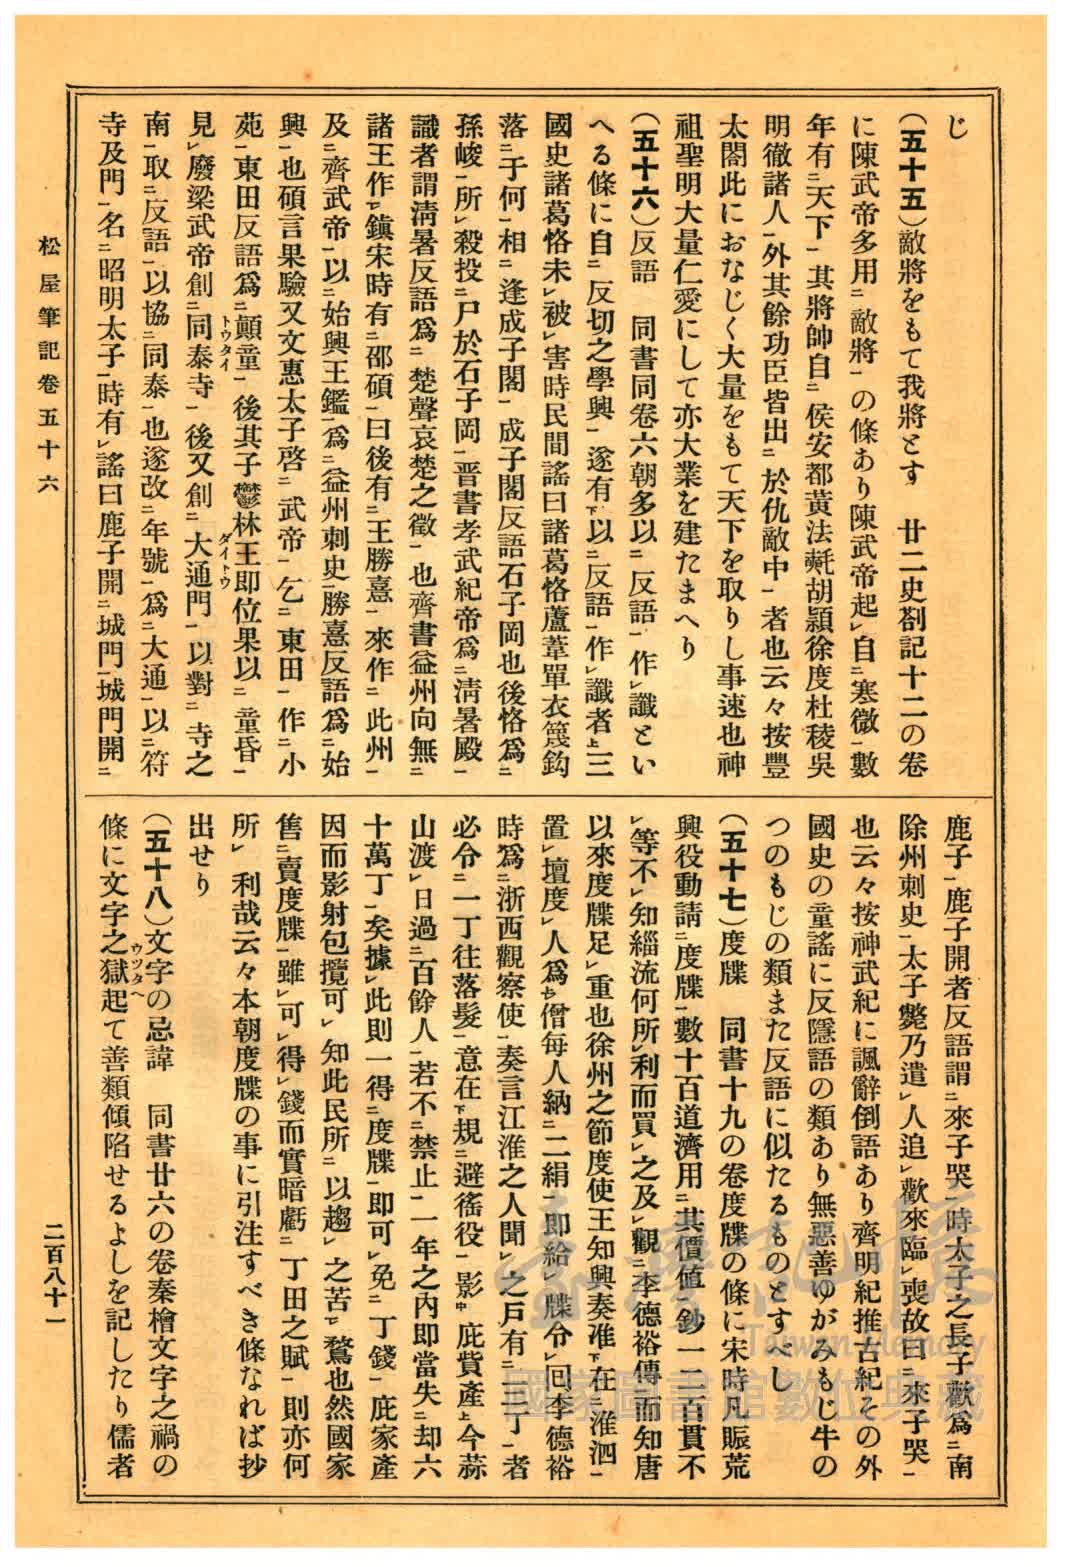 じ
(五十五)敵將をもて我將とす　廿二史劄記十二の卷
に陳武帝多用㆓敵將㆒の條あり陳武帝起㆑自㆓寒微㆒數
年有㆓天下㆒其將帥自㆓侯安都黃法𣰋胡穎徐度杜稜吳
明徹諸人㆒外其餘功臣皆出㆓於仇敵中㆒者也云々按豐
太閤此におなじく大量をもて天下を取りし事速也神
祖聖明大量仁愛にして亦大業を建たまへり
(五十六)反語　同書同卷六朝多以㆓反語㆒作㆑讖とい
へる條に自㆓反切之學興㆒遂有㆘以㆓反語㆒作㆑讖者㆖三
國史諸葛恪未㆑被㆑害時民間謠曰諸葛恪蘆葦單衣篾鈎
落㆓于何㆒相㆓逢成子閣㆒成子閣反語石子岡也後恪爲㆓
孫峻㆒所㆑殺投㆓尸於石子岡㆒晉書孝武紀帝爲㆓淸暑殿㆒
識者謂淸暑反語爲㆓楚聲哀楚之徵㆒也齊書益州向無㆓
諸王作㆑鎭宋時有㆓邵碩㆒曰後有㆓王勝憙㆒來作㆓此州㆒
及㆓齊武帝㆒以㆓始興王鑑㆒爲㆓益州刺史㆒勝憙反語爲㆓始
興㆒也碩言果驗又文惠太子啓㆓武帝㆒乞㆓東田㆒作㆓小
苑㆒東田反語爲㆓顚童㆒後其子鬱林王卽位果以㆓童昏㆒
トウタイ
見㆑廢梁武帝創㆓同泰寺㆒後又創㆓大通門㆒以對㆓寺之
ダイトウ
南㆒取㆓反語㆒以協㆓同泰㆒也遂改㆓年號㆒爲㆓大通㆒以㆓符
寺及門㆒名㆓昭明太子㆒時有㆑謠曰鹿子開㆓城門㆒城門開㆓
鹿子㆒鹿子開者反語謂㆓來子哭㆒時太子之長子歡爲㆓南
除州刺史㆒太子斃乃遣㆑人追㆑歡來臨㆑喪故曰㆓來子哭㆒
也云々按神武紀に諷辭倒語あり齊明紀推古紀その外
國史の童謠に反隱語の類あり無惡善ゆがみもじ牛の
つのもじの類また反語に似たるものとすべし
(五十七)度牒　同書十九の卷度牒の條に宋時凡賑荒
興役動請㆓度牒㆒數十百道濟用㆓其價値㆒鈔一二百貫不
㆑等不㆑知緇流何所㆑利而買㆑之及㆑觀㆓李德裕傳㆒而知唐
以來度牒足㆑重也徐州之節度使王知興奏准㆘在㆓淮泗㆒
置㆑壇度㆑人爲㆖僧每人納㆓二絹㆒卽給㆑牒令㆑回李德裕
時爲㆓浙西觀察使㆒奏言江淮之人聞㆑之戶有㆓三丁㆒者
必令㆓一丁往落髮㆒意在㆘規㆓避徭役㆒影㆗庇貲產㆖今蒜
山渡㆑日過㆓百餘人㆒若不㆓禁止㆒一年之內卽當失㆓却六
十萬丁㆒矣據㆑此則一得㆓度牒㆒卽可㆑免㆓丁錢㆒庇家產
因而影射包攬可㆑知此民所㆓以趨㆑之苦㆘鶩也然國家
售㆓賣度牒㆒雖㆑可㆑得㆑錢而實暗虧㆓丁田之賦㆒則亦何
所㆑利哉云々本朝度牒の事に引注すべき條なれば抄
出せり
(五十八)文字の忌諱　同書廿六の卷秦檜文字之禍の
條に文字之獄起て善類傾陷せるよしを記したり儒者
ウツタヘ
松屋筆記卷五十六
二百八十一
臺灣記憶
Taiwan Memory
國家圖書館數位典藏